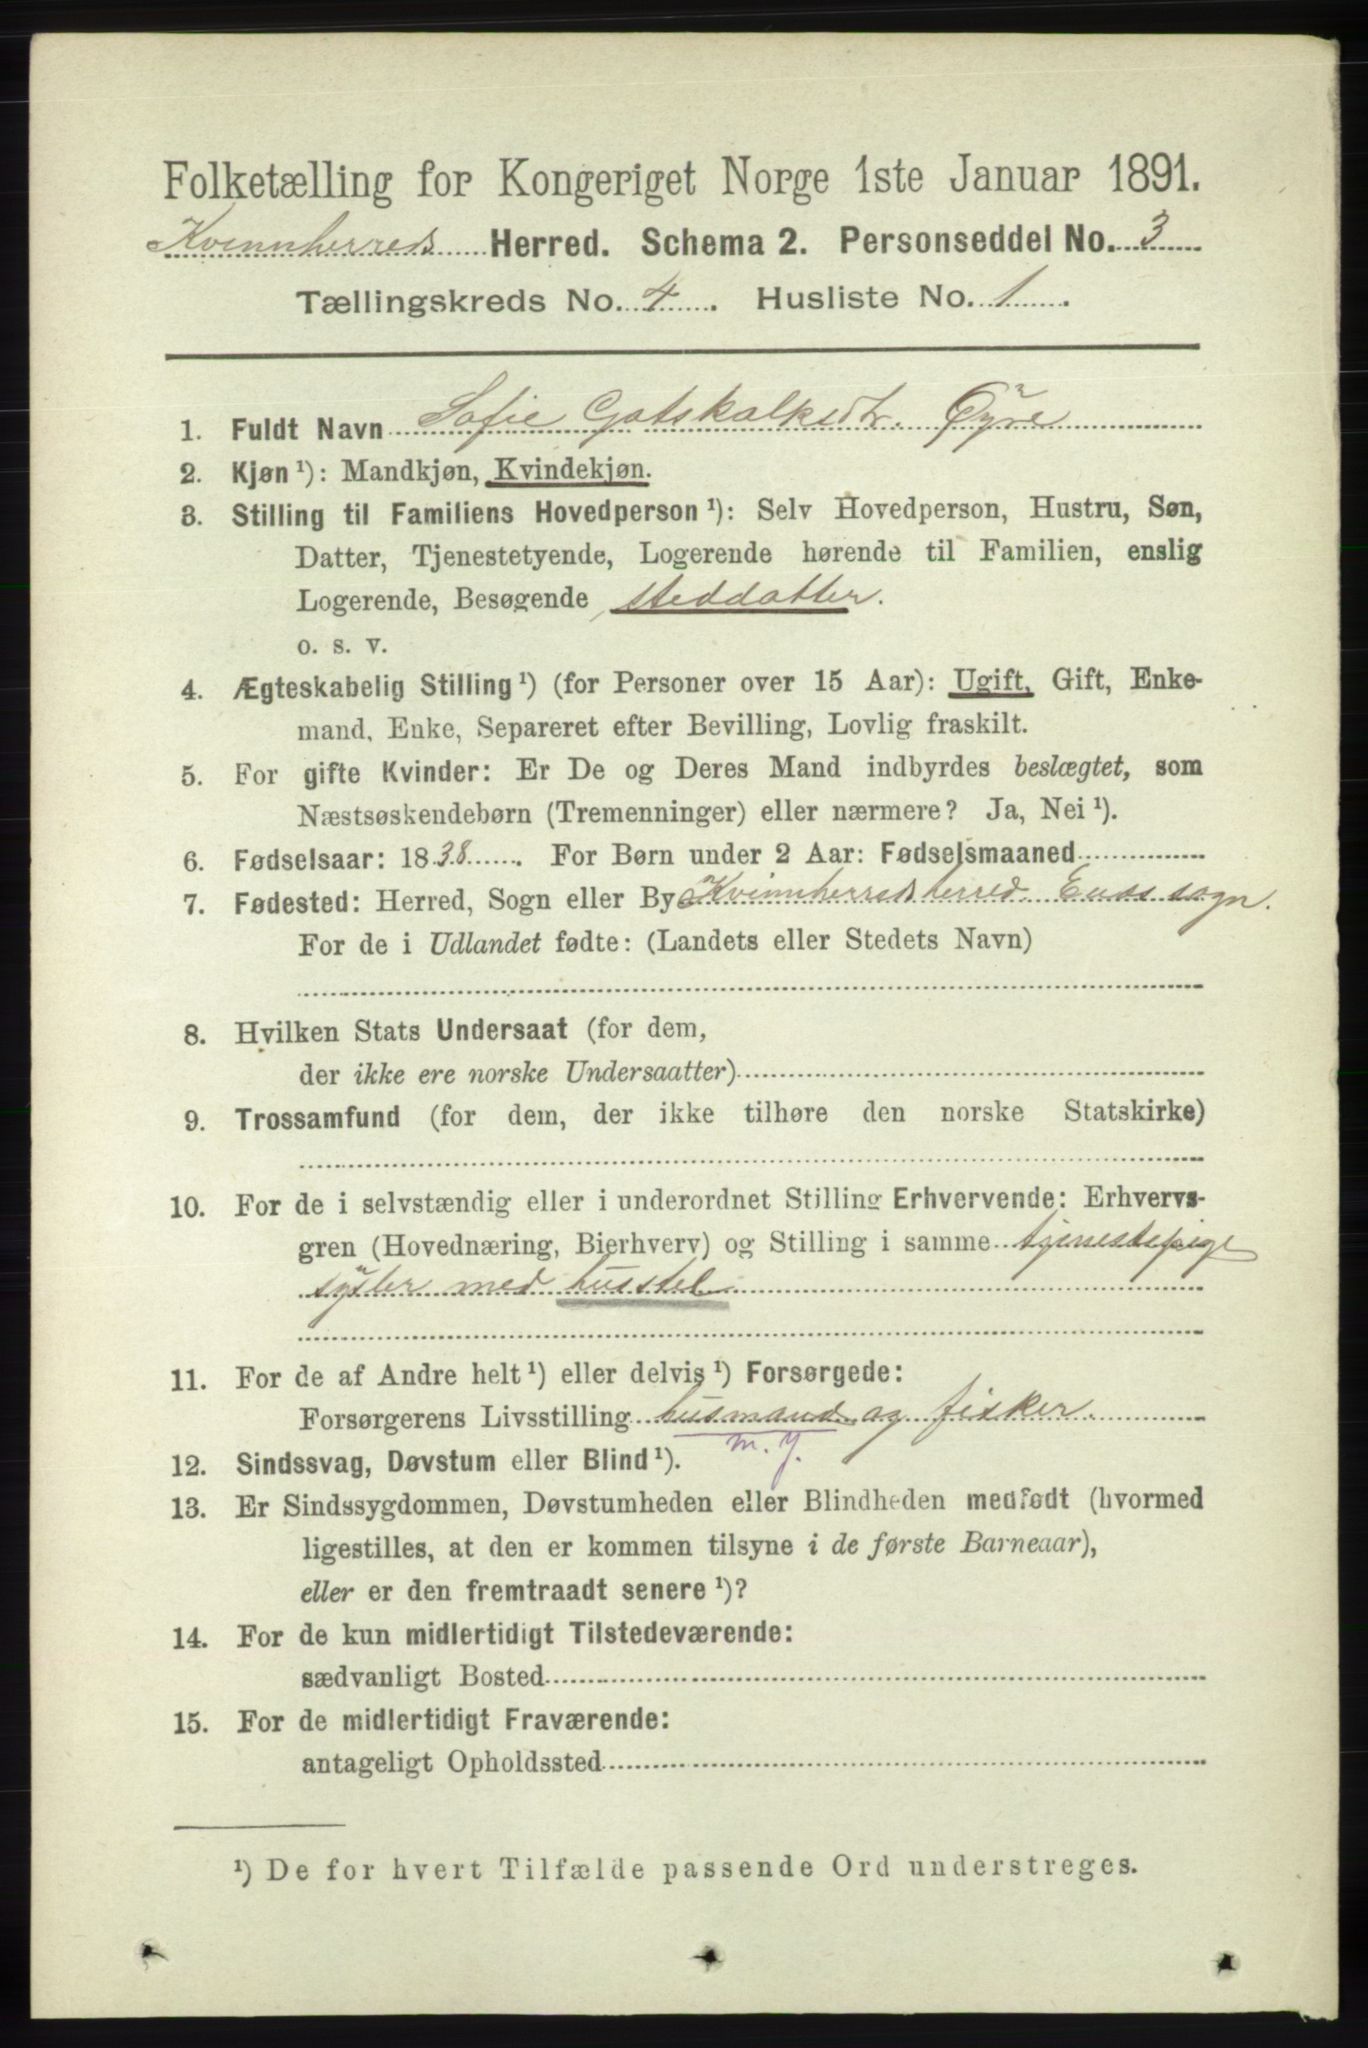 Folketælling for Kongeriget Norge 1ste Januar 1891.
Kvinnherreds Herred. Schema 2. Personseddel No. 3
Tællingskreds No. 4. Husliste No. 1.
1. Fuldt Navn Sofie Gotskalksdtr. Øyre
2. Kjøn ¹): Mandkjøn, Kvindekjøn.
3. Stilling til Familiens Hovedperson ¹): Selv Hovedperson, Hustru, Søn,
Datter, Tjenestetyende, Logerende hørende til Familien, enslig
Logerende, Besøgende, steddatter.
o. s. v.
4. Ægteskabelig Stilling ¹) (for Personer over 15 Aar): Ugift, Gift, Enke-
mand, Enke, Separeret efter Bevilling, Lovlig fraskilt.
5. For gifte Kvinder: Er De og Deres Mand indbyrdes beslægtet, som
Næstsøskendebørn (Tremenninger) eller nærmere? Ja, Nei ¹).
6. Fødselsaar: 1838. For Børn under 2 Aar: Fødselsmaaned
7. Fødested: Herred, Sogn eller By Kvinnherreds herred, Enæs sogn.
For de i Udlandet fødte: (Landets eller Stedets Navn)
8. Hvilken Stats Undersaat (for dem,
der ikke ere norske Undersaatter)
9. Trossamfund (for dem, der ikke tilhøre den norske Statskirke)
10. For de i selvstændig eller i underordnet Stilling Erhvervende: Erhvervs-
gren (Hovednæring, Bierhverv) og Stilling i samme tjenestepige
sysler med husstel
11. For de af Andre helt ¹) eller delvis ¹) Forsørgede:
Forsørgerens Livsstilling husmand og fisker.
m. j.
12. Sindssvag, Døvstum eller Blind ¹).
13. Er Sindssygdommen, Døvstumheden eller Blindheden medfødt (hvormed
ligestilles, at den er kommen tilsyne i de første Barneaar),
eller er den fremtraadt senere ¹)?
14. For de kun midlertidigt Tilstedeværende:
sædvanligt Bosted
15. For de midlertidigt Fraværende:
antageligt Opholdssted
¹) De for hvert Tilfælde passende Ord understreges.